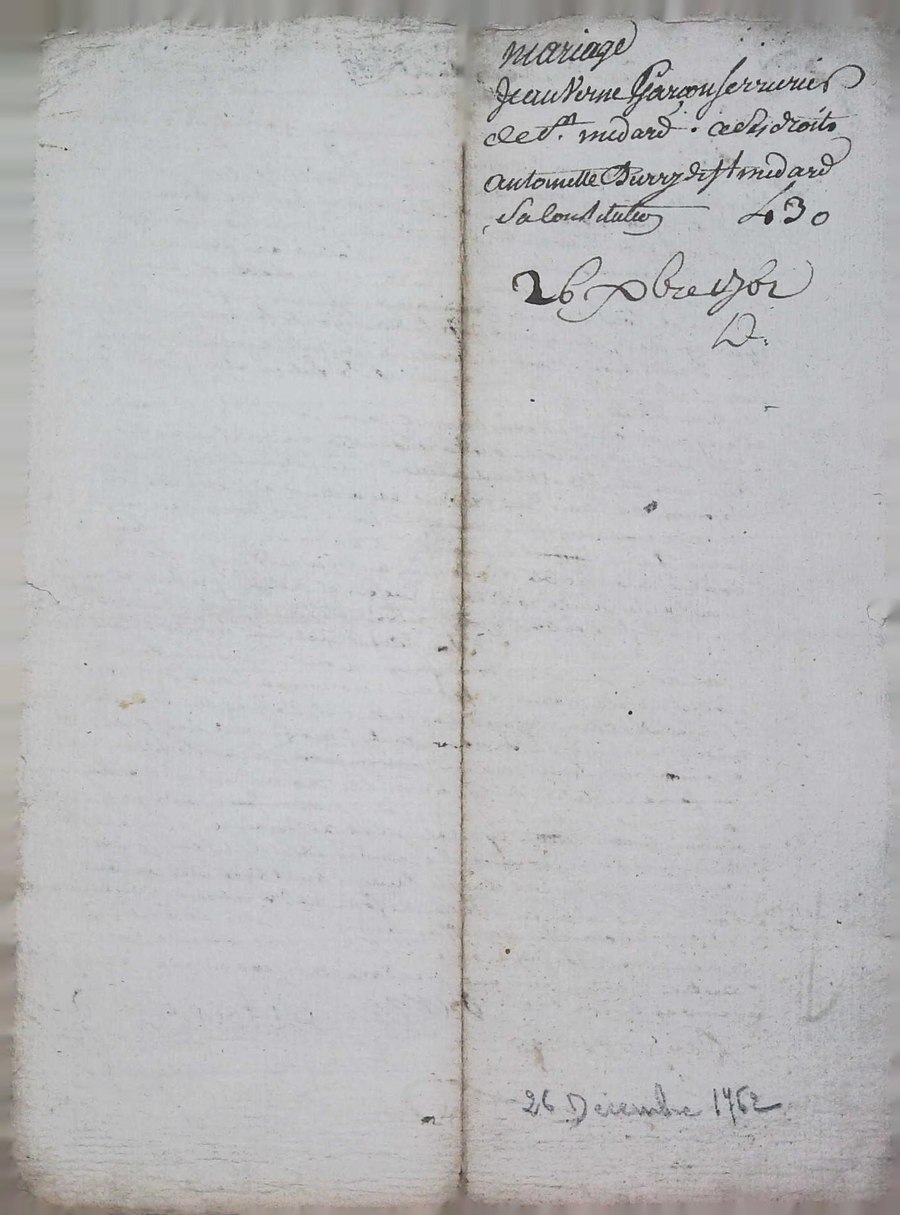 mariage
Jean Verne Garçon serrurier
de St. medard . a Ses droits
Antoinette Durry de st medard
Sa Constitution 430
26 Xbre 1762
D.
26 Decembre 1762